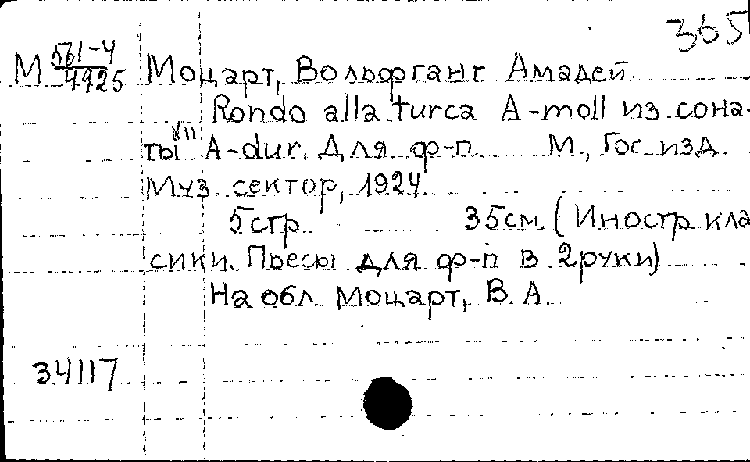 365
М 561-4/4925 Моцарт, Вольфганг Амадей
Rondo alla turca A-moll из сона-
ты A-dur. Для ф-п. М., Гос. изд.
Муз. сектор, 1924.
5 стр. 35 см. (Иностр. кла
сики. Пьесы для ф-п в 2 руки)
На обл. Моцарт, В. А.
34117